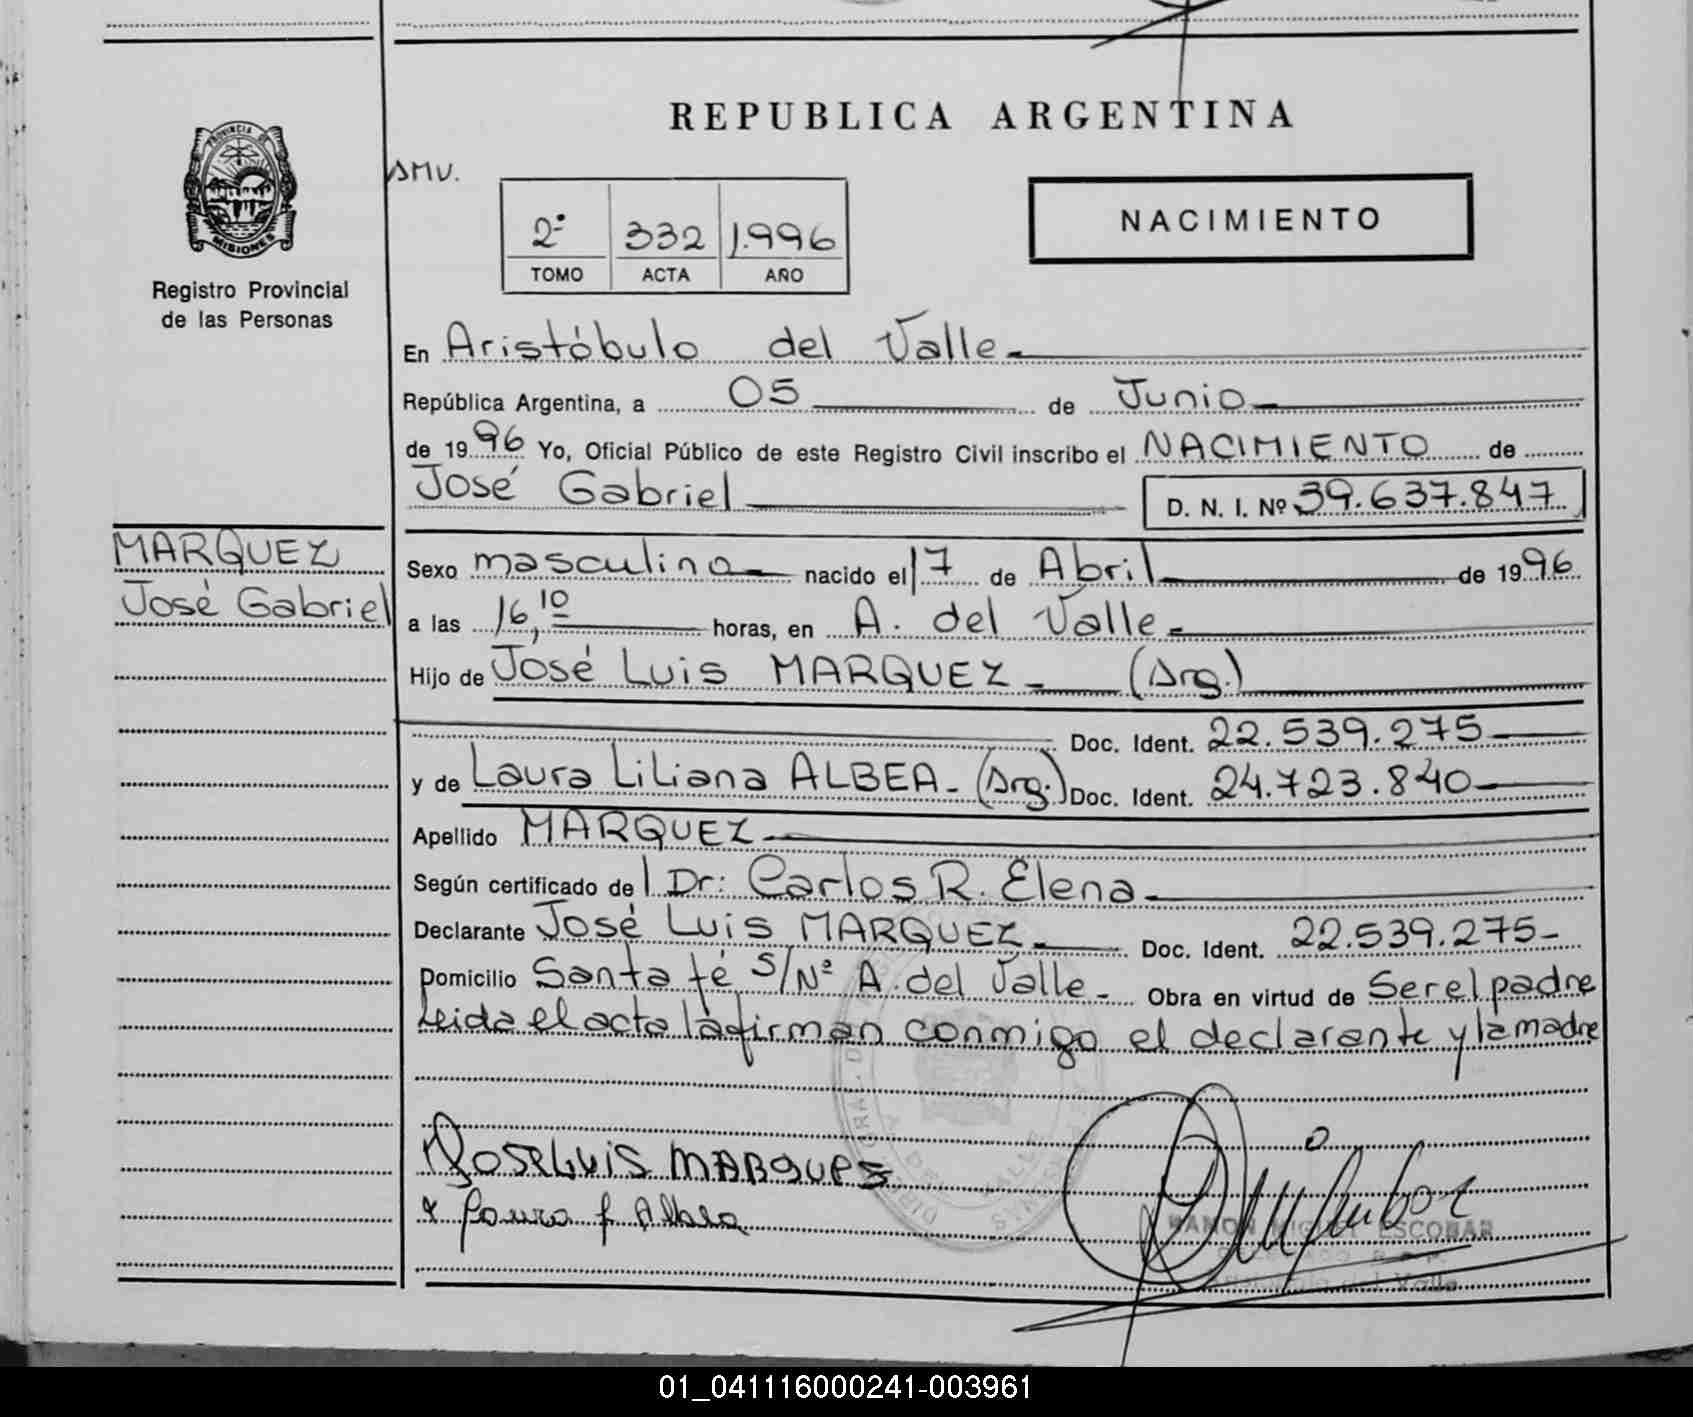 REPUBLICA ARGENTINA
PROVINCIA DE
MISIONES
Registro Provincial
de las Personas
SMV.
2º 332 1.996
TOMO ACTA AÑO
NACIMIENTO
En Aristóbulo del Valle
República Argentina, a 05 de Junio
de 1996 Yo, Oficial Público de este Registro Civil inscribo el NACIMIENTO de
José Gabriel D. N. I. Nº 39.637.847
MARQUEZ
José Gabriel
Sexo masculino nacido el 17 de Abril de 1996
a las 16,10 horas, en A. del Valle
Hijo de José Luis MARQUEZ (Arg.)
Doc. Ident. 22.539.275
y de Laura Liliana ALBEA (Arg.) Doc. Ident. 24.723.840
Apellido MARQUEZ
Según certificado del Dr: Carlos R. Elena
Declarante José Luis MARQUEZ Doc. Ident. 22.539.275
Domicilio Santa fé S/Nº A. del Valle Obra en virtud de Ser el padre
Leida el acta la firman conmigo el declarante y la madre
Jose Luis Marquez
Laura L Albea
RAMON MIGUEL ESCOBAR
01_041116000241-003961